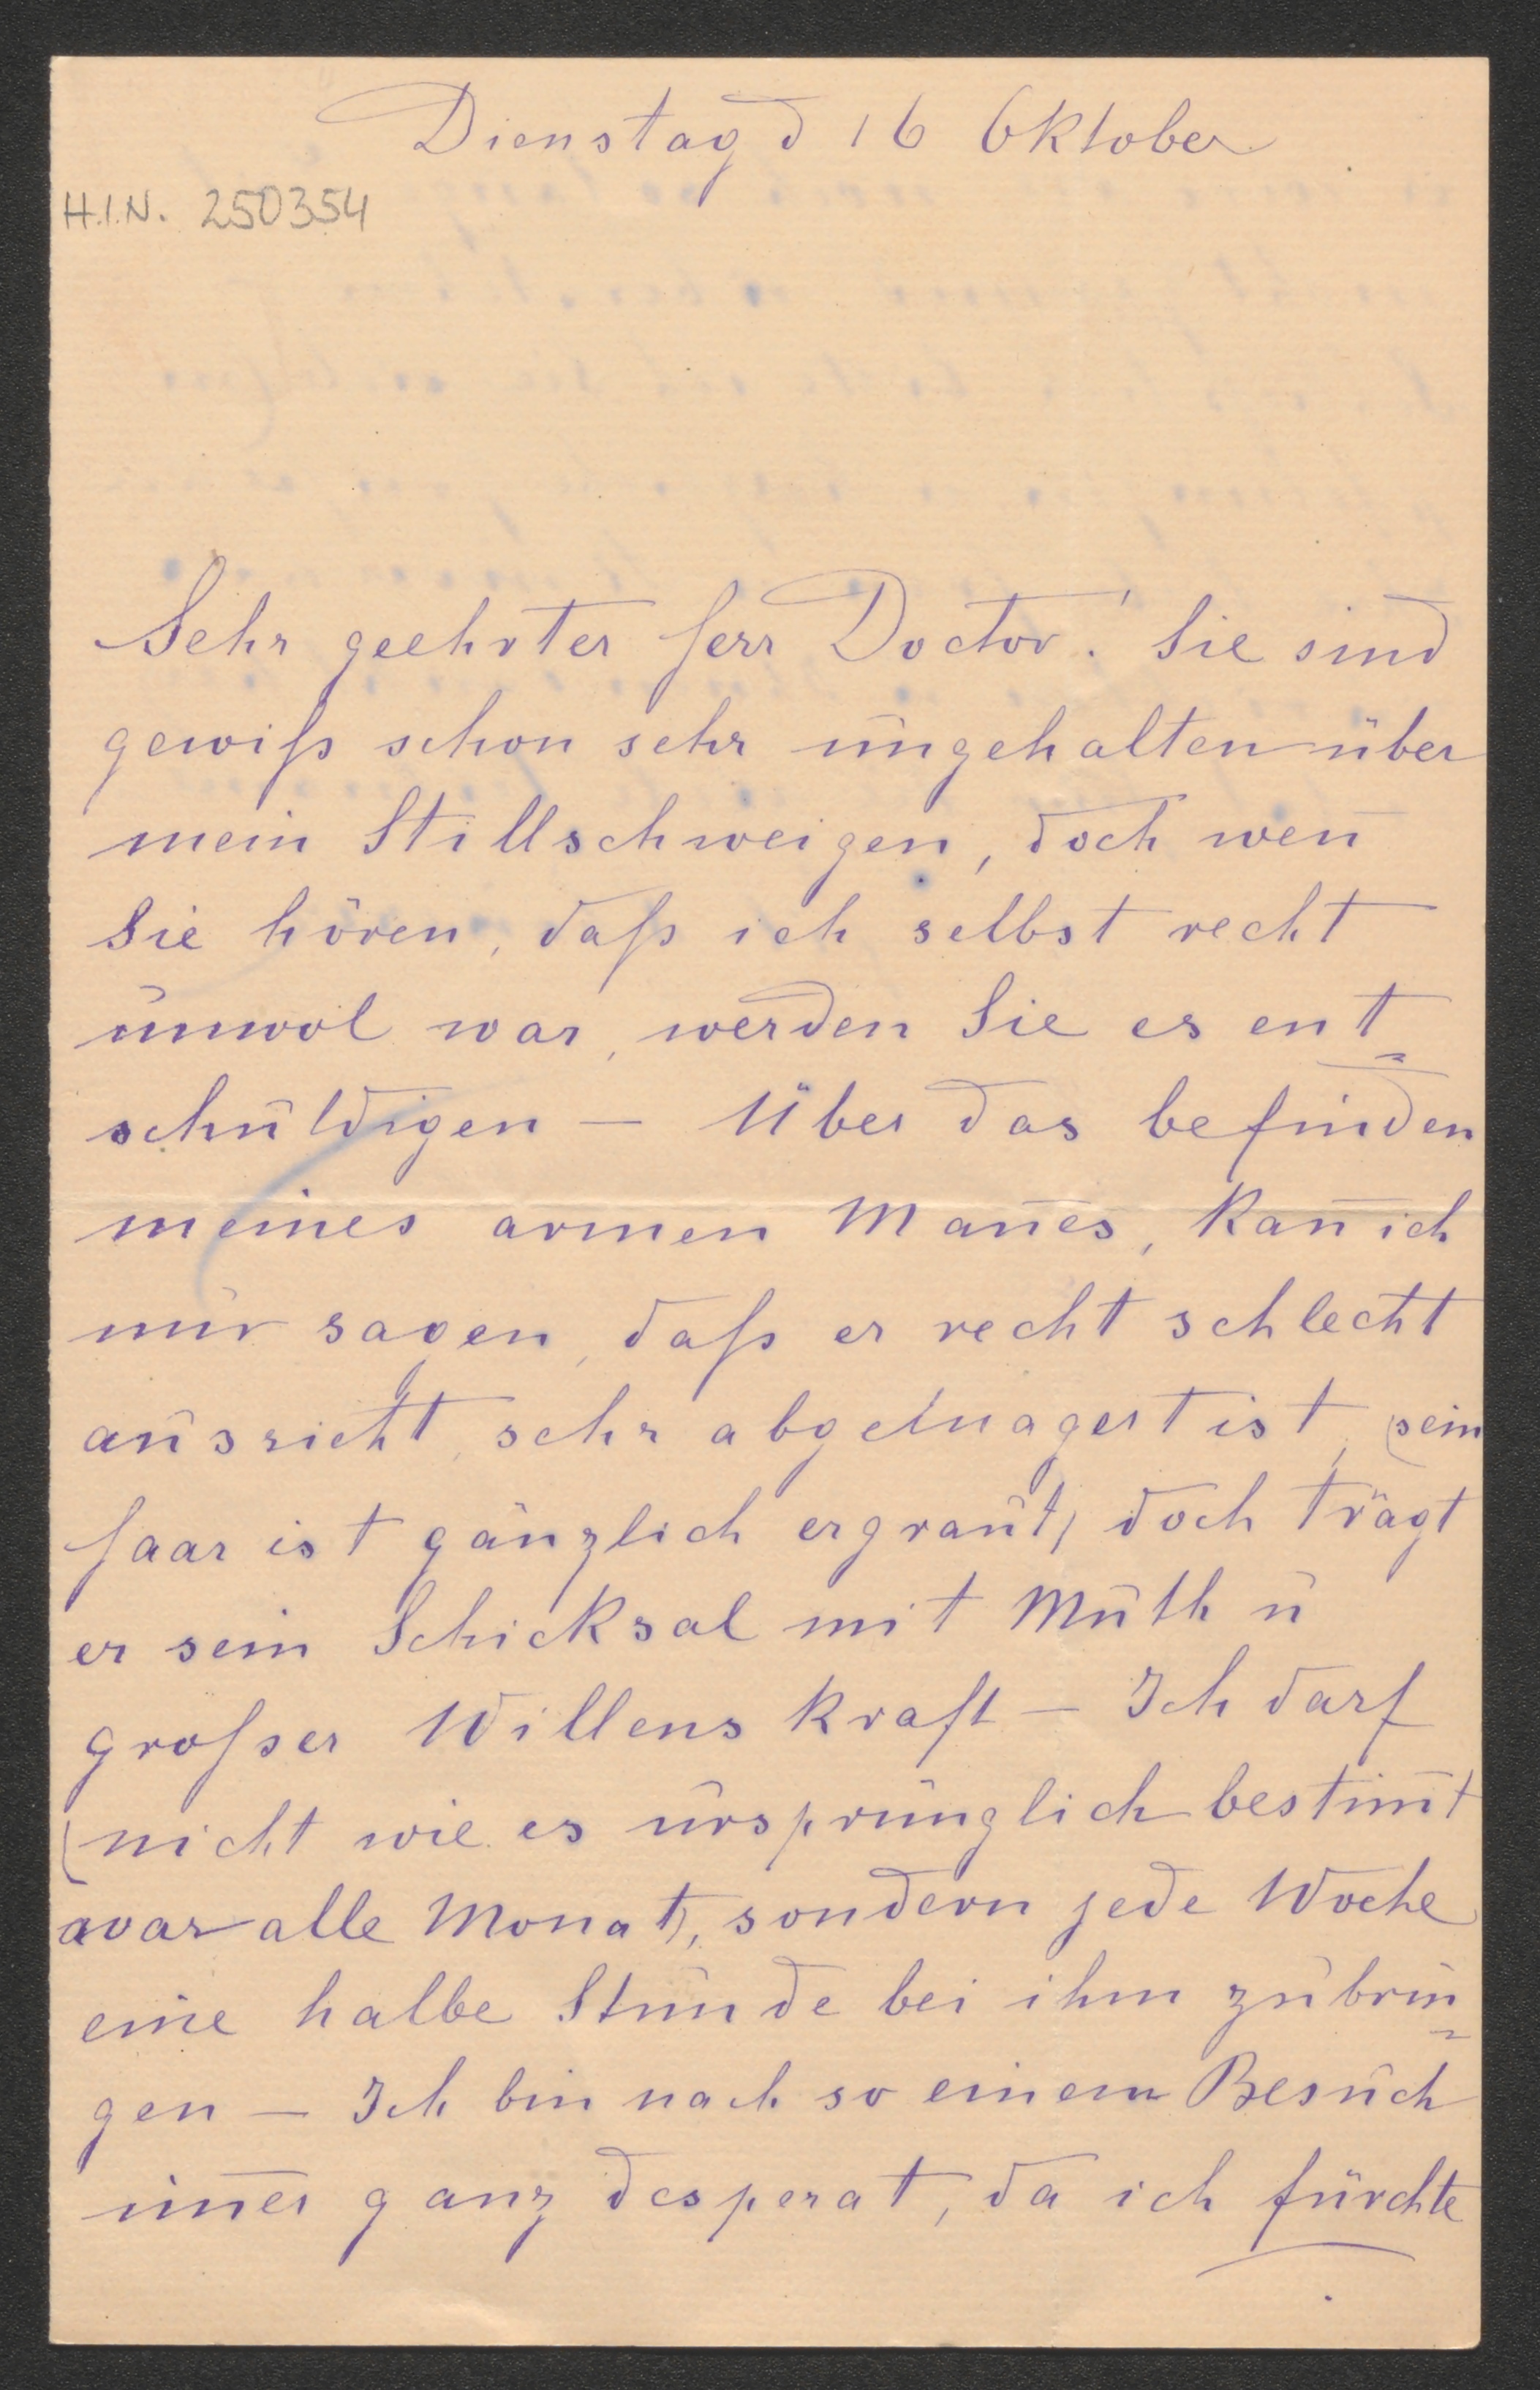 Dienstag d 16 Oktober
H.I.N. 250354
Sehr geehrter Herr Doctor! Sie sind
gewiß schon sehr ungehalten über
mein Stillschweigen, doch weñ
Sie hören, daß ich selbst recht
unwol war, werden Sie es ent=
schuldigen – Über das befinden
meines armen Mañes, kañ ich
nur sagen, daß er recht schlecht
aussieht, sehr abgemagert ist, (sein
Haar ist gänzlich ergraut) doch trägt
er sein Schicksal mit Muth u
großer Willenskraft – Ich darf
(nicht wie es ursprünglich bestim̄t
war alle Monat), sondern jede Woche
eine halbe Stunde bei ihm zubrin=
gen – Ich bin nach so einem Besuch
im̄er ganz desperat, da ich fürchte